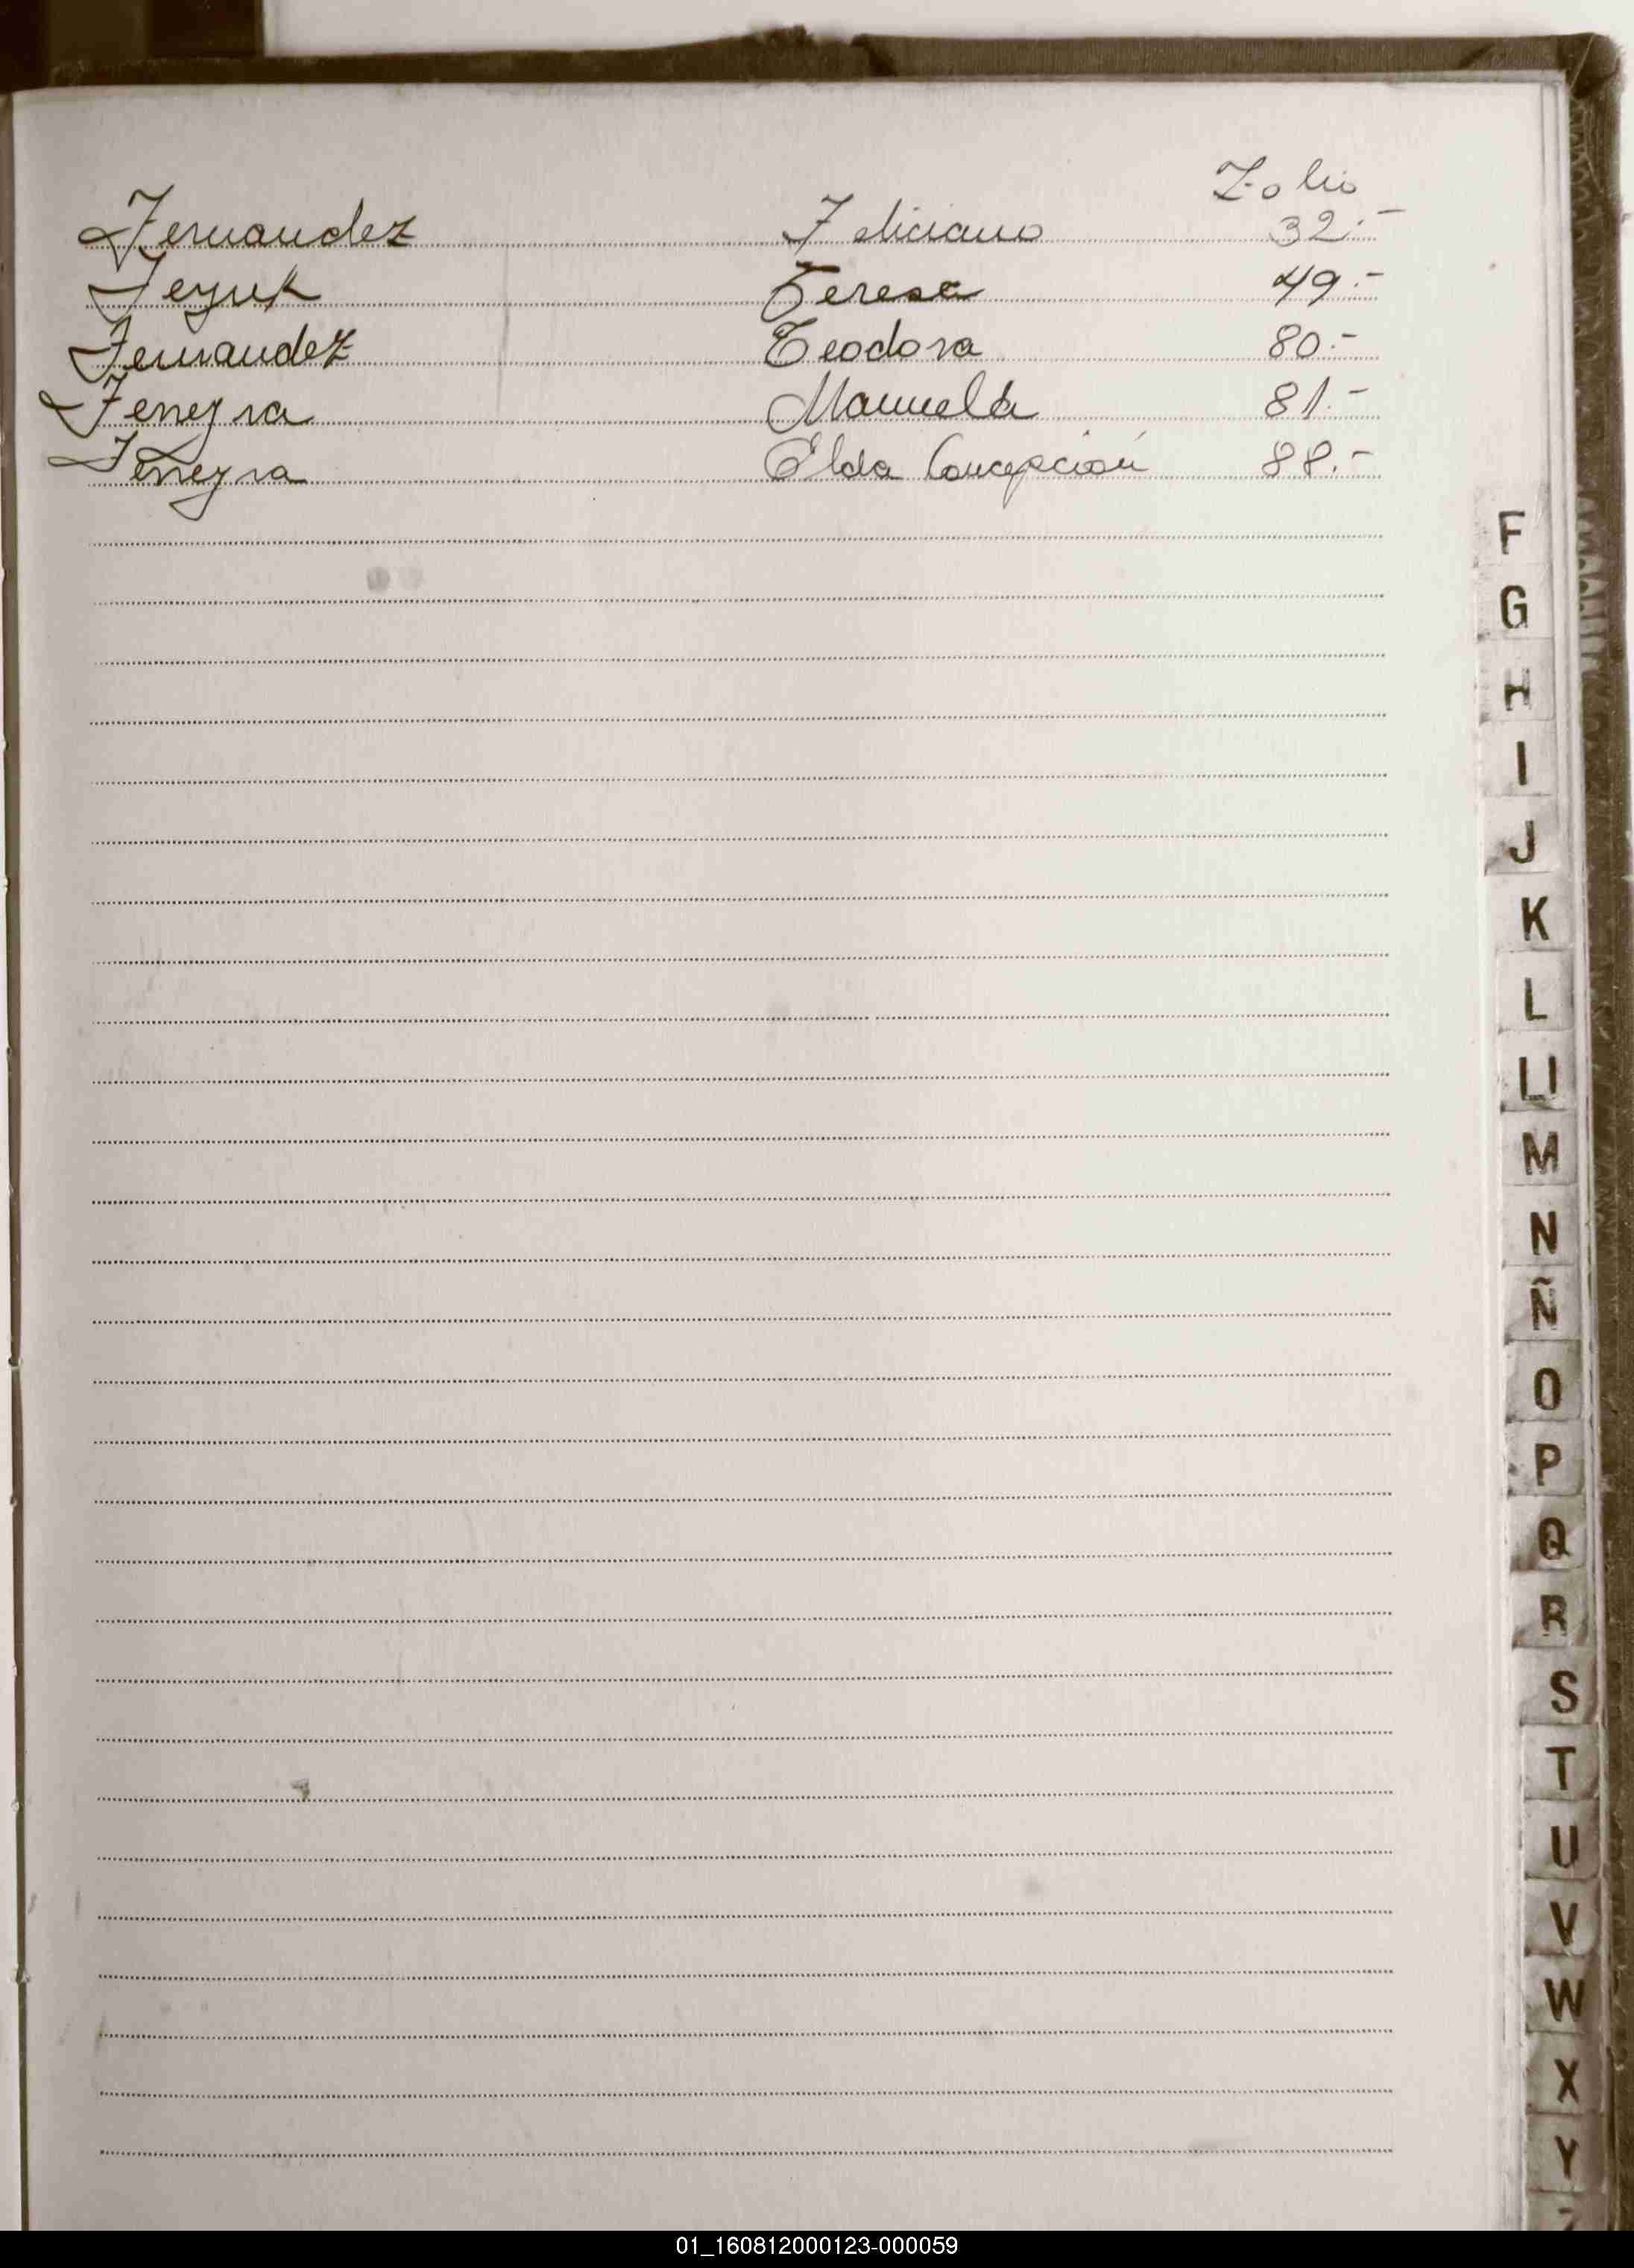 Folio
Fernandez Feliciano 32.-
Feyuk Teresa 49.-
Fernandez Teodora 80.-
Ferreyra Manuela 81.-
Ferreyra Elda Concepción 88.-
F
G
H
I
J
K
L
Ll
M
N
Ñ
O
P
Q
R
S
T
U
V
W
X
Y
01_160812000123-000059